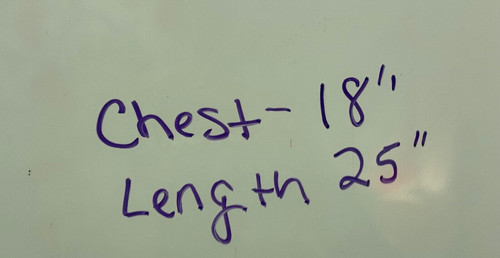 Chest- 18"
Length 25"